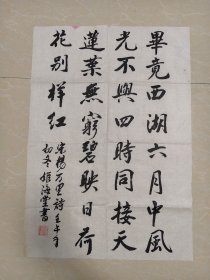 畢竟西湖六月中風
光不與四時同接天
蓮葉無窮碧映日荷
花別樣紅
宋楊万里詩壬午年
初冬海堂書